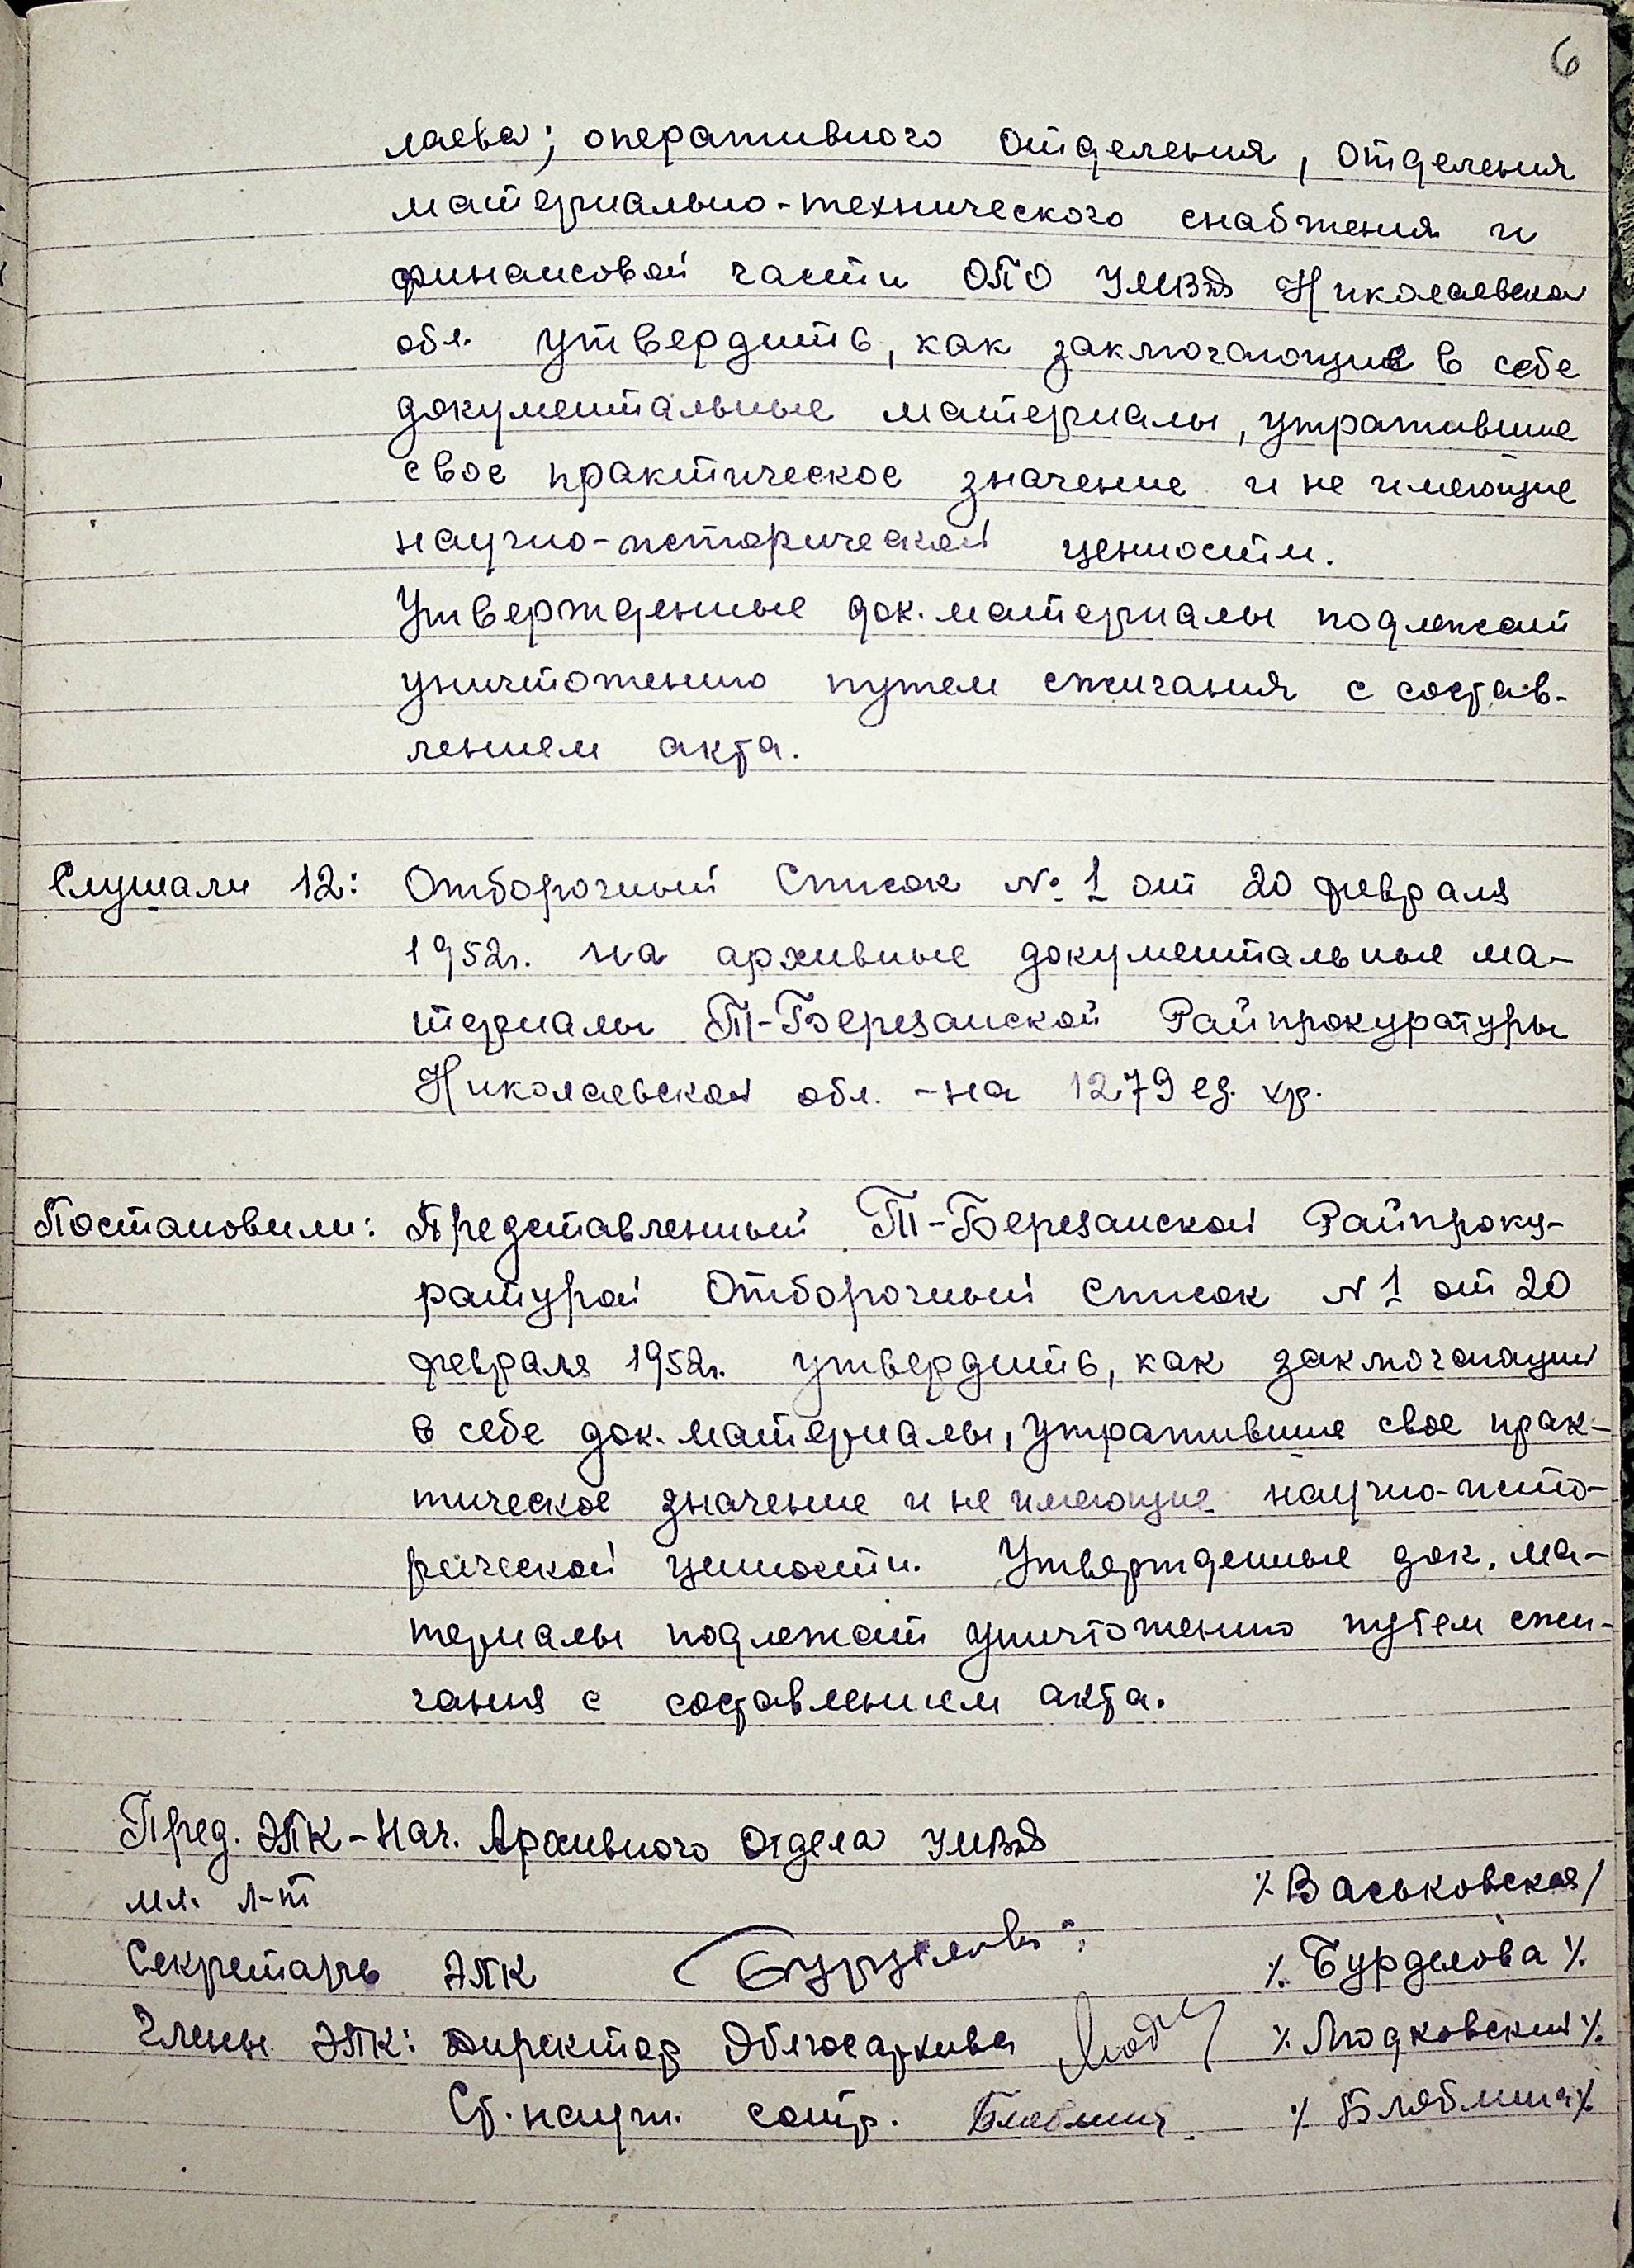 6
лаева; оперативного отделения, отделения
материально-технического снабжения и
финансовой части ОПО УМВД Николаевской
обл. утвердить, как заключающие в себе
документальные материалы, утратившие
свое практическое значение и не имеющие
научно-исторической ценности.
Утвержденные док. материалы подлежат
уничтожению путем сжигания с состав-
лением акта.
Слушали 12: Отборочный список № 1 от 20 февраля
1952г. на архивные документальные ма-
териалы Т-Березанской Райпрокуратуры
Николаевской обл. - на 1279 ед. хр.
Постановили: Представленный Т-Березанской Райпроку-
ратурой Отборочный список N 1 от 20
февраля 1952г. утвердить, как заключающий
в себе док. материалы, утратившие свое прак-
тическое значение и не имеющие научно-исто-
рической ценности. Утвержденные док. ма-
териалы подлежат уничтожению путем сжи-
гания с составлением акта.
Пред. ЭПК - Нач. Архивного отдела УМВД
мл. л-т /Васьковская/
Секретарь ЭПК /Бурделова/
Члены ЭПК: Директор Облгосархива /Людковский/
Ст. научн. сотр.